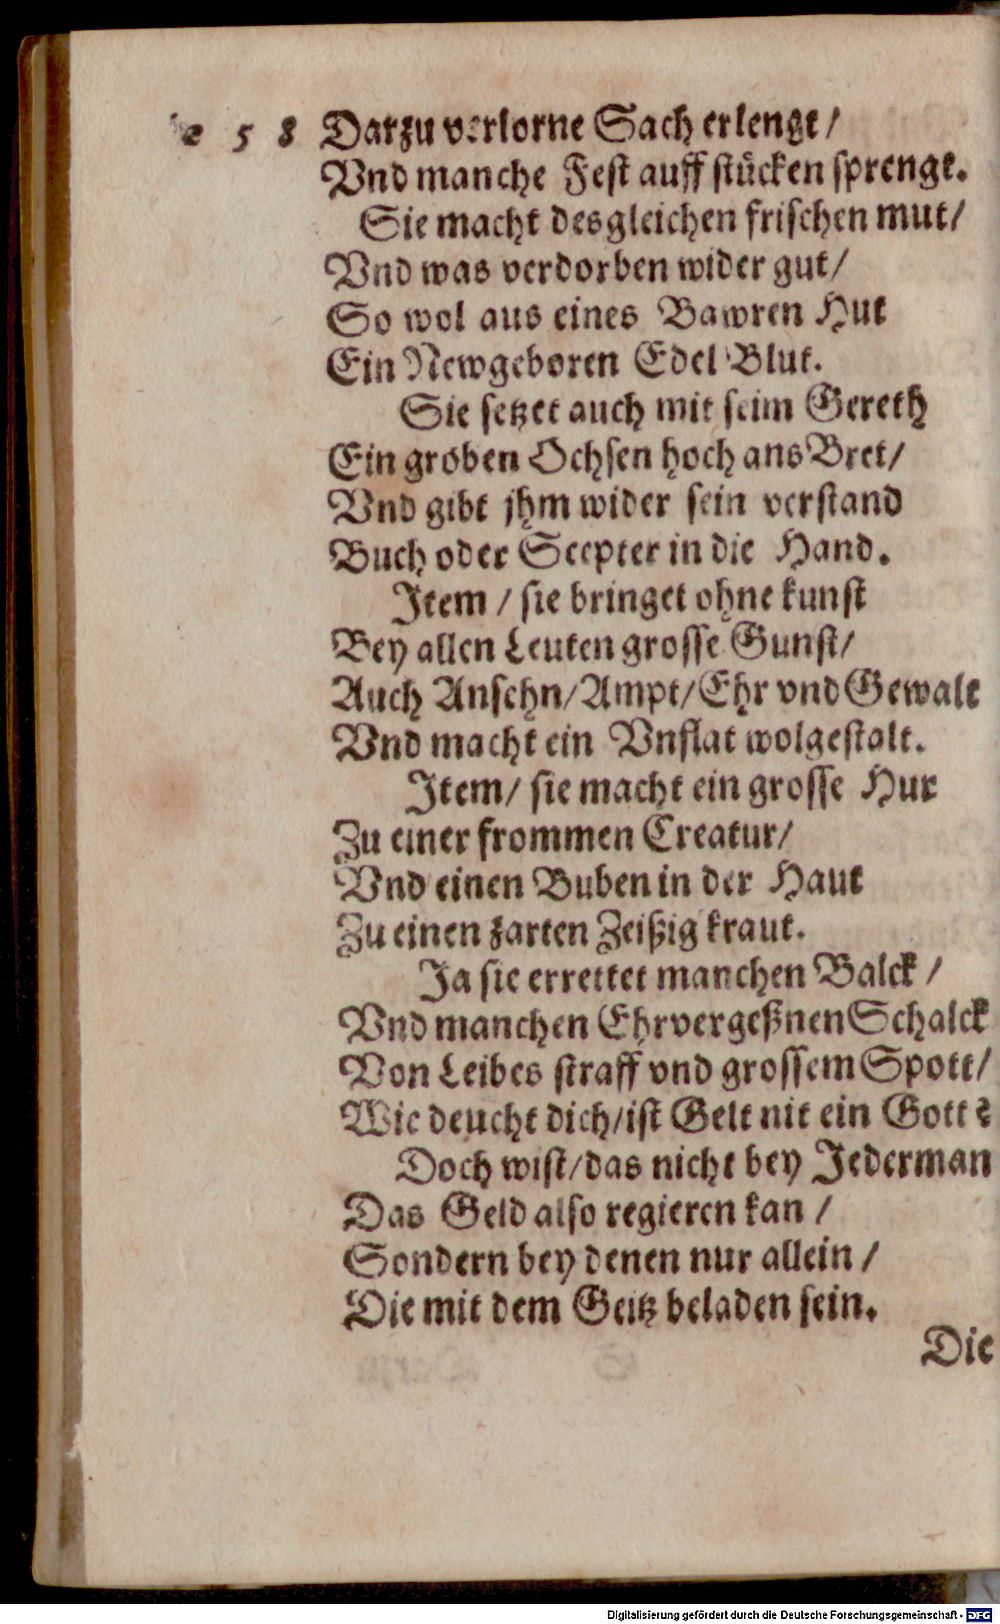 258 Darzu verlorne Sach erlengt/
Vnd manche Fest auff stücken sprengt.
Sie macht desgleichen frischen mut/
Vnd was verdorben wider gut/
So wol aus eines Bawren Hut
Ein Newgeboren Edel Blut.
Sie setzet auch mit seim Gereth
Ein groben Ochsen hoch ans Bret/
Vnd gibt jhm wider sein verstand
Buch oder Scepter in die Hand.
Item / sie bringet ohne kunst
Bey allen Leuten grosse Gunst/
Auch Ansehn/Ampt/Ehr vnd Gewalt
Vnd macht ein Vnflat wolgestalt.
Item/ sie macht ein grosse Hur
Zu einer frommen Creatur/
Vnd einen Buben in der Haut
Zu einen zarten Zeißig kraut.
Ja sie errettet manchen Balck /
Vnd manchen Ehrvergeßnen Schalck
Von Leibes straff vnd grossem Spott/
Wie deucht dich/ist Gelt nit ein Gott?
Doch wist/das nicht bey Jederman
Das Geld also regieren kan /
Sondern bey denen nur allein /
Die mit dem Geitz beladen sein.
Die
Digitalisierung gefördert durch die Deutsche Forschungsgemeinschaft - DFG